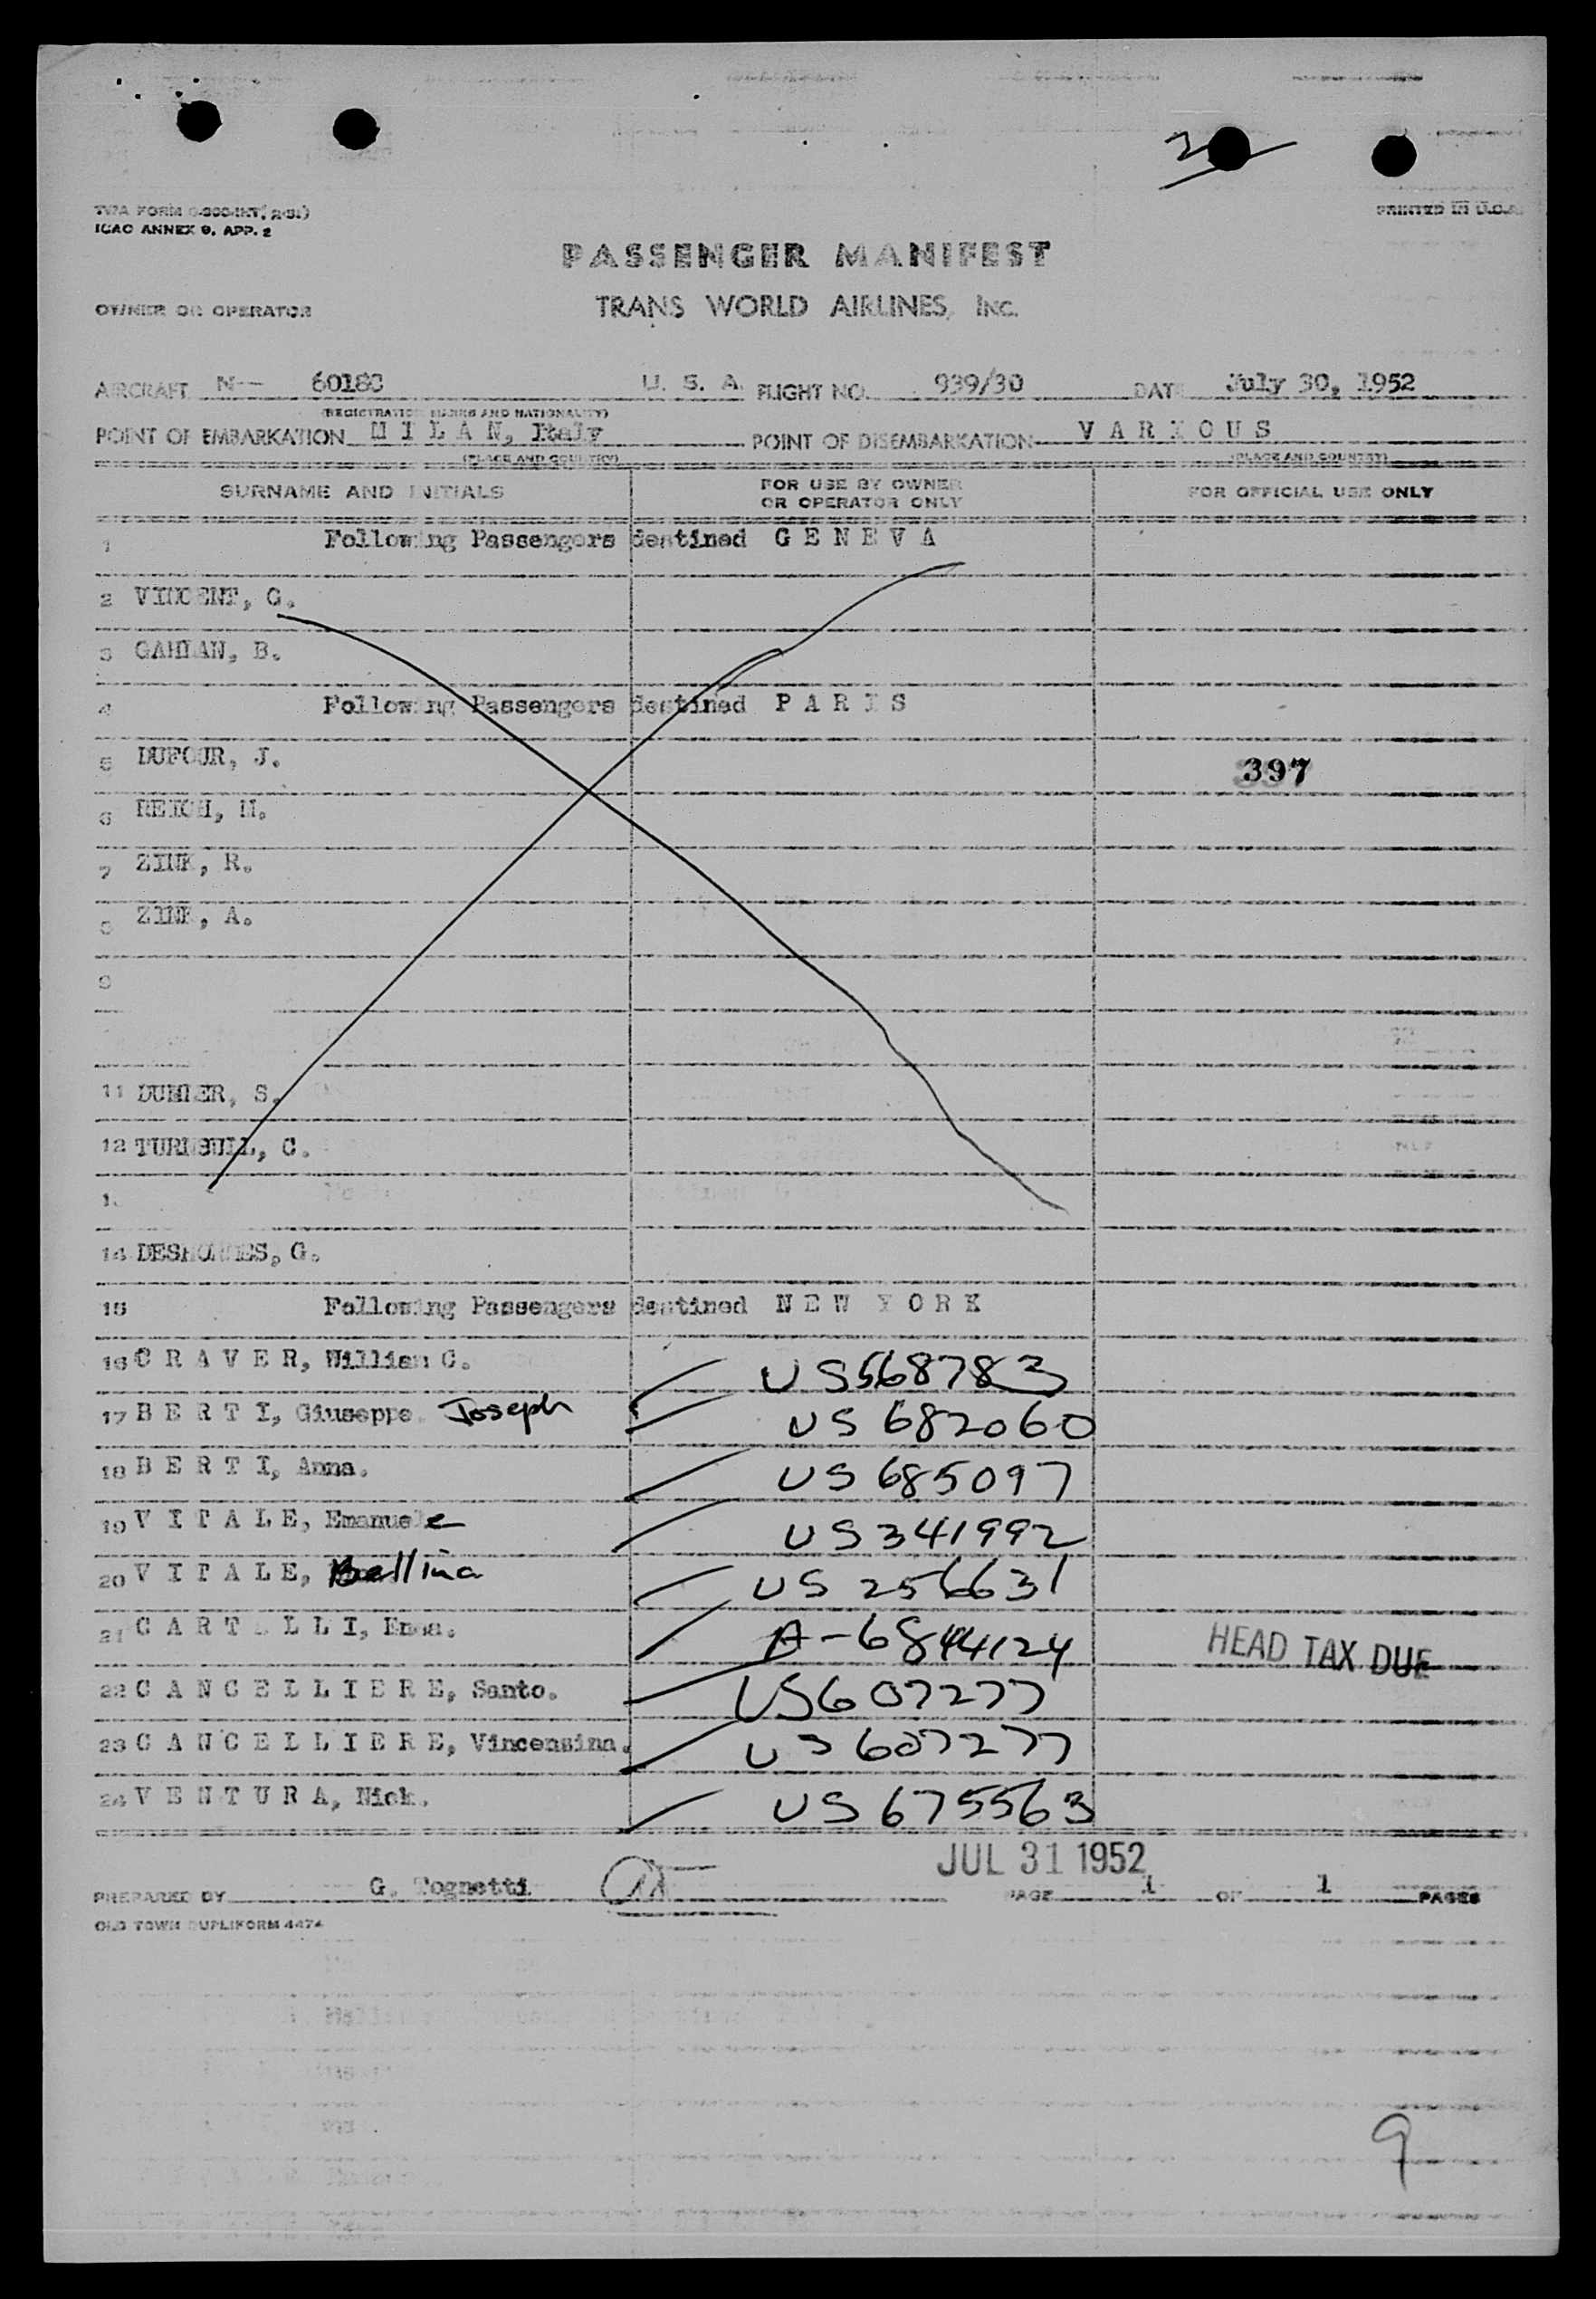 TWA FORM
ICAO ANNEX 9, APP. 2
PRINTED IN U.S.A.
PASSENGER MANIFEST
OWNER OR OPERATOR TRANS WORLD AIRLINES, INC.
AIRCRAFT N-- 6018C U. S. A. FLIGHT NO. 939/30 DATE July 30, 1952
(REGISTRATION MARKS AND NATIONALITY)
POINT OF EMBARKATION M I L A N, Italy POINT OF DISEMBARKATION V A R I O U S
(PLACE AND COUNTRY) (PLACE AND COUNTRY)
SURNAME AND INITIALS FOR USE BY OWNER OR OPERATOR ONLY FOR OFFICIAL USE ONLY
1 Following Passengers destined G E N E V A
2 VINCENT, G.
3 B.
4 Following Passengers destined P A R I S
5 DUFOUR, J.
397
6 REICH, M.
7 ZINK, R.
8 ZINK, A.
9
11 S.
12 TURNBULL, C.
14 G.
15 Following Passengers destined N E W Y O R K
16 C R A V E R, William G. US568783
17 B E R T I, Giuseppe. Joseph US 682060
18 B E R T I, Anna. US 685097
19 V I T A L E, Emanuele US 341992
20 V I T A L E, Bellina US 256631
21 A-6844124 HEAD TAX DUE
22 C A N C E L L I E R E, Santo. US607277
23 C A N C E L L I E R E, Vincensina. US 607277
24 V E N T U R A, Nick. US 675563
JUL 31 1952
PREPARED BY G. Tognetti PAGE 1 OF 1 PAGES
OLD TOWN DUPLIFORM 4474
9